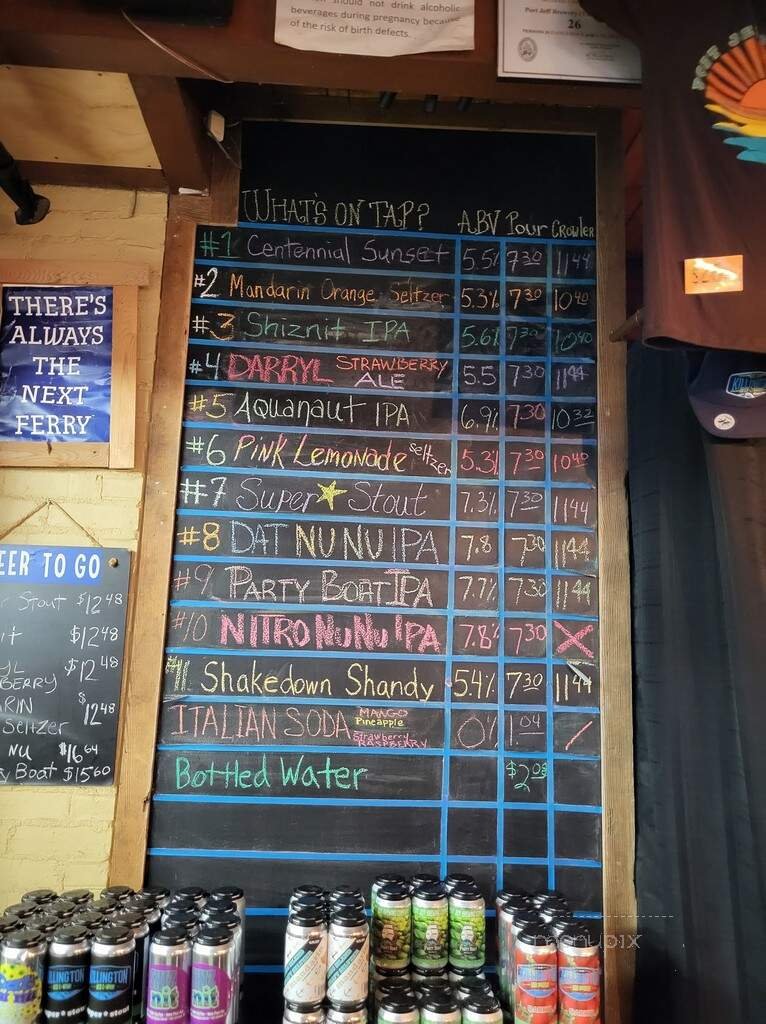 should not drink alcoholic
beverages during pregnancy because
of the risk of birth defects.
Port Jeff Brewing
26
WHAT'S ON TAP? ABV Pour Crowler
#1 Centennial Sunset 5.5% 7³⁰ 11⁴⁴
#2 Mandarin Orange Seltzer 5.3% 7³⁰ 10⁴⁰
#3 Shiznit IPA 5.6% 7³⁰ 10⁴⁰
#4 DARRYL STRAWBERRY ALE 5.5 7³⁰ 11⁴⁴
#5 Aquanaut IPA 6.9% 7³⁰ 10³²
#6 Pink Lemonade seltzer 5.3% 7³⁰ 10⁴⁰
#7 Super Stout 7.3% 7³⁰ 11⁴⁴
#8 DAT NU NU IPA 7.8 7³⁰ 11⁴⁴
#9 PARTY BOAT IPA 7.7% 7³⁰ 11⁴⁴
#10 NITRO NUNU IPA 7.8% 7³⁰ X
#11 Shakedown Shandy 5.4% 7³⁰ 11⁴⁴
ITALIAN SODA MANGO Pineapple Strawberry RASPBERRY 0% 1.04 /
Bottled Water $2.08
THERE'S
ALWAYS
THE
NEXT
FERRY
EER TO GO
Stout $12⁴⁸
$12⁴⁸
YL
BERRY $12⁴⁸
RIN
Seltzer $12⁴⁸
NU $16⁶⁴
Boat $15⁶⁰
PORT JE
KILLINGTON
super* stout
menupix